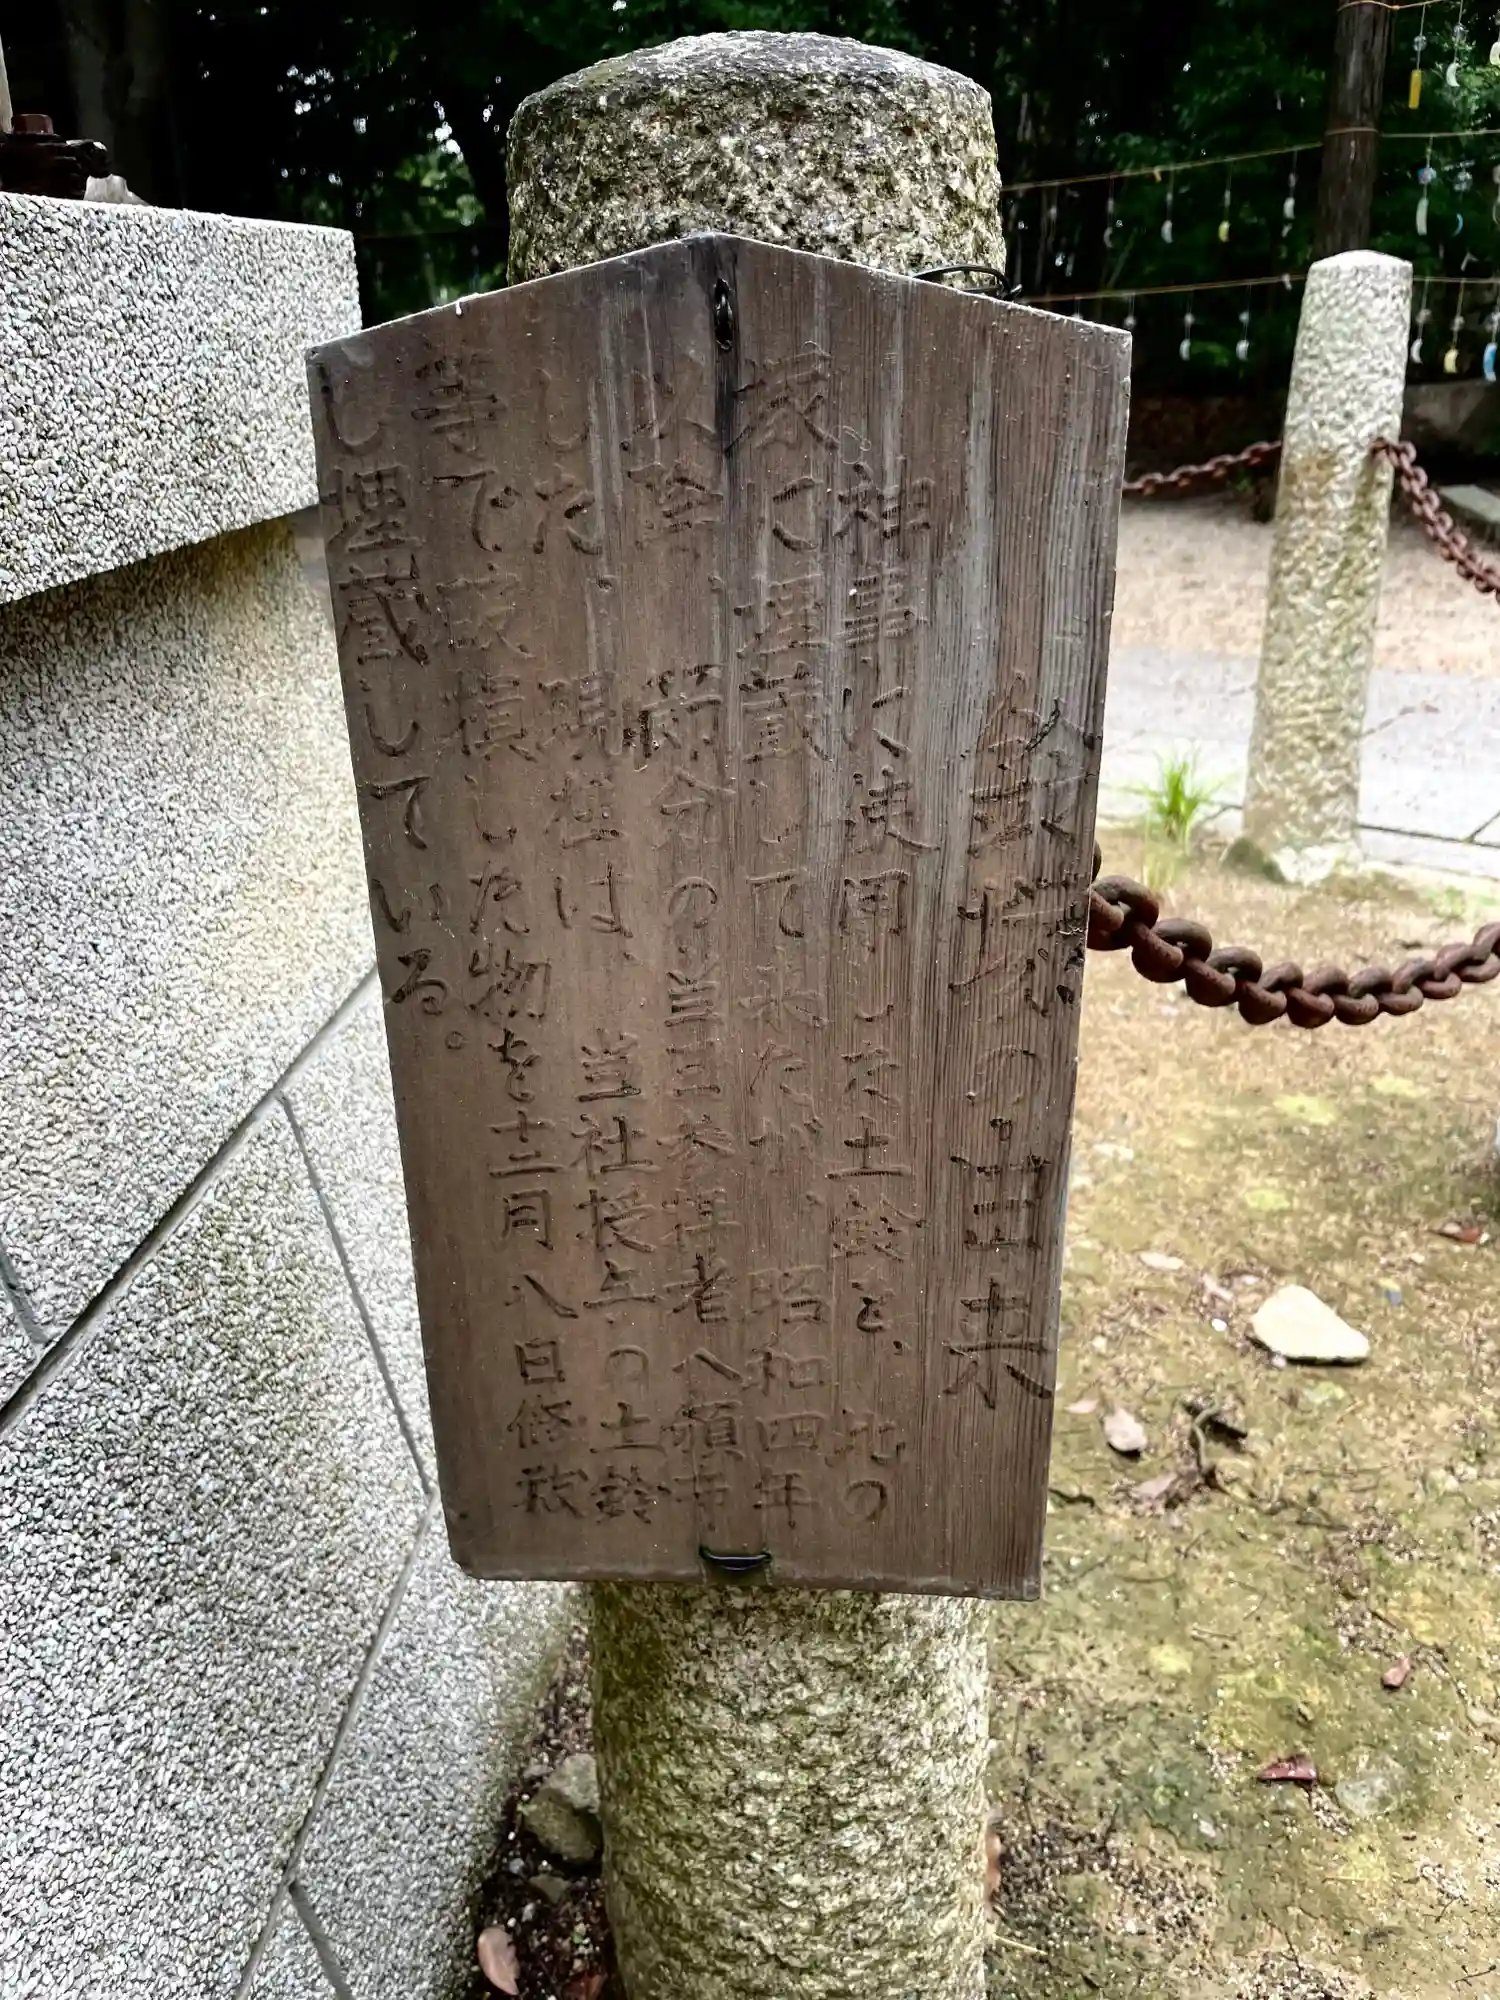 鈴塚の由来
神事に使用した土鈴を、北の
塚に埋蔵して来たが、昭和四年
以降、節分の当日参拝者へ頒布
した。現在は、当社授与の土鈴
等で破損した物を十二月八日修祓
し埋蔵している。